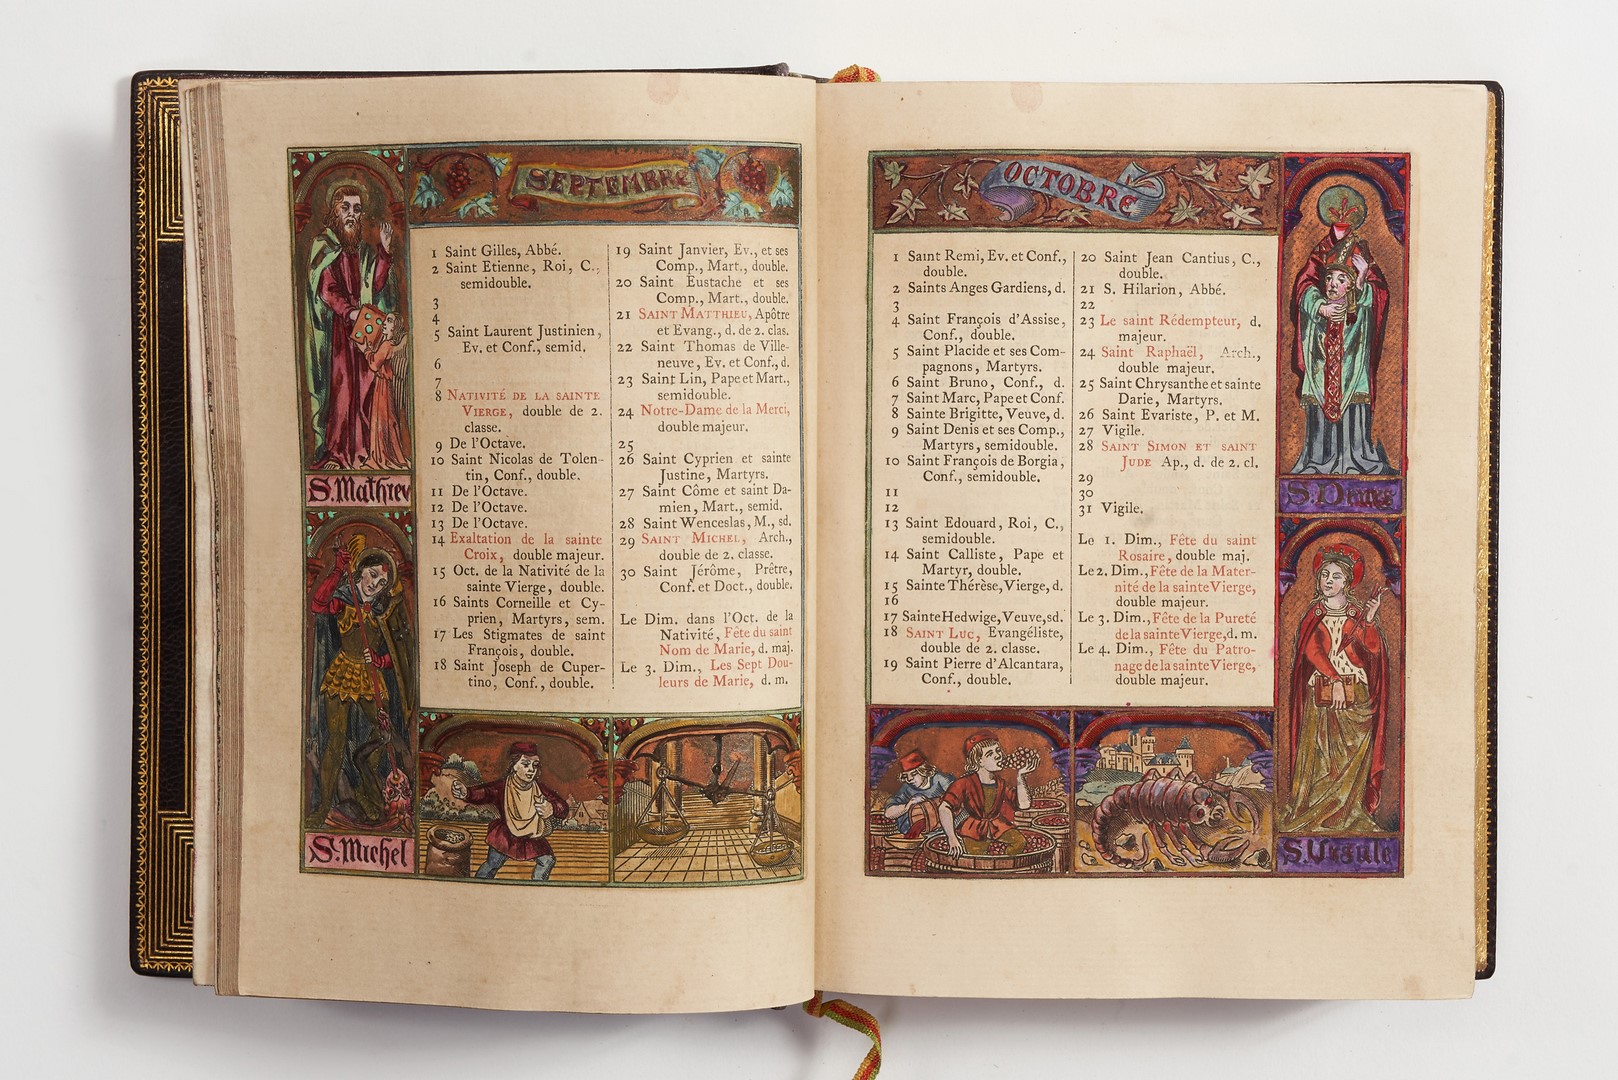 SEPTEMBRE
1 Saint Gilles, Abbé.
2 Saint Etienne, Roi, C.,
semidouble.
3
4
5 Saint Laurent Justinien,
Ev. et Conf., semid.
6
7
8 NATIVITÉ DE LA SAINTE
VIERGE, double de 2.
classe.
9 De l'Octave.
10 Saint Nicolas de Tolen-
tin, Conf., double.
11 De l'Octave.
12 De l'Octave.
13 De l'Octave.
14 Exaltation de la sainte
Croix, double majeur.
15 Oct. de la Nativité de la
sainte Vierge, double.
16 Saints Corneille et Cy-
prien, Martyrs, sem.
17 Les Stigmates de saint
François, double.
18 Saint Joseph de Cuper-
tino, Conf., double.
19 Saint Janvier, Ev., et ses
Comp., Mart., double.
20 Saint Eustache et ses
Comp., Mart., double.
21 SAINT MATTHIEU, Apôtre
et Evang., d. de 2. clas.
22 Saint Thomas de Ville-
neuve, Ev. et Conf., d.
23 Saint Lin, Pape et Mart.,
semidouble.
24 Notre-Dame de la Merci,
double majeur.
25
26 Saint Cyprien et sainte
Justine, Martyrs.
27 Saint Côme et saint Da-
mien, Mart., semid.
28 Saint Wenceslas, M., sd.
29 SAINT MICHEL, Arch.,
double de 2. classe.
30 Saint Jérôme, Prêtre,
Conf. et Doct., double.
Le Dim. dans l'Oct. de la
Nativité, Fête du saint
Nom de Marie, d. maj.
Le 3. Dim., Les Sept Dou-
leurs de Marie, d. m.
S. Mathieu
S. Michel
OCTOBRE
1 Saint Remi, Ev. et Conf.,
double.
2 Saints Anges Gardiens, d.
3
4 Saint François d'Assise,
Conf., double.
5 Saint Placide et ses Com-
pagnons, Martyrs.
6 Saint Bruno, Conf., d.
7 Saint Marc, Pape et Conf.
8 Sainte Brigitte, Veuve, d.
9 Saint Denis et ses Comp.,
Martyrs, semidouble.
10 Saint François de Borgia,
Conf., semidouble.
11
12
13 Saint Edouard, Roi, C.,
semidouble.
14 Saint Calliste, Pape et
Martyr, double.
15 Sainte Thérèse, Vierge, d.
16
17 Sainte Hedwige, Veuve, sd.
18 SAINT LUC, Evangéliste,
double de 2. classe.
19 Saint Pierre d'Alcantara,
Conf., double.
20 Saint Jean Cantius, C.,
double.
21 S. Hilarion, Abbé.
22
23 Le saint Rédempteur, d.
majeur.
24 Saint Raphaël, Arch.,
double majeur.
25 Saint Chrysanthe et sainte
Darie, Martyrs.
26 Saint Evariste, P. et M.
27 Vigile.
28 SAINT SIMON ET SAINT
JUDE Ap., d. de 2. cl.
29
30
31 Vigile.
Le 1. Dim., Fête du saint
Rosaire, double maj.
Le 2. Dim., Fête de la Mater-
nité de la sainte Vierge,
double majeur.
Le 3. Dim., Fête de la Pureté
de la sainte Vierge, d. m.
Le 4. Dim., Fête du Patro-
nage de la sainte Vierge,
double majeur.
S. Denes
S. Ursule